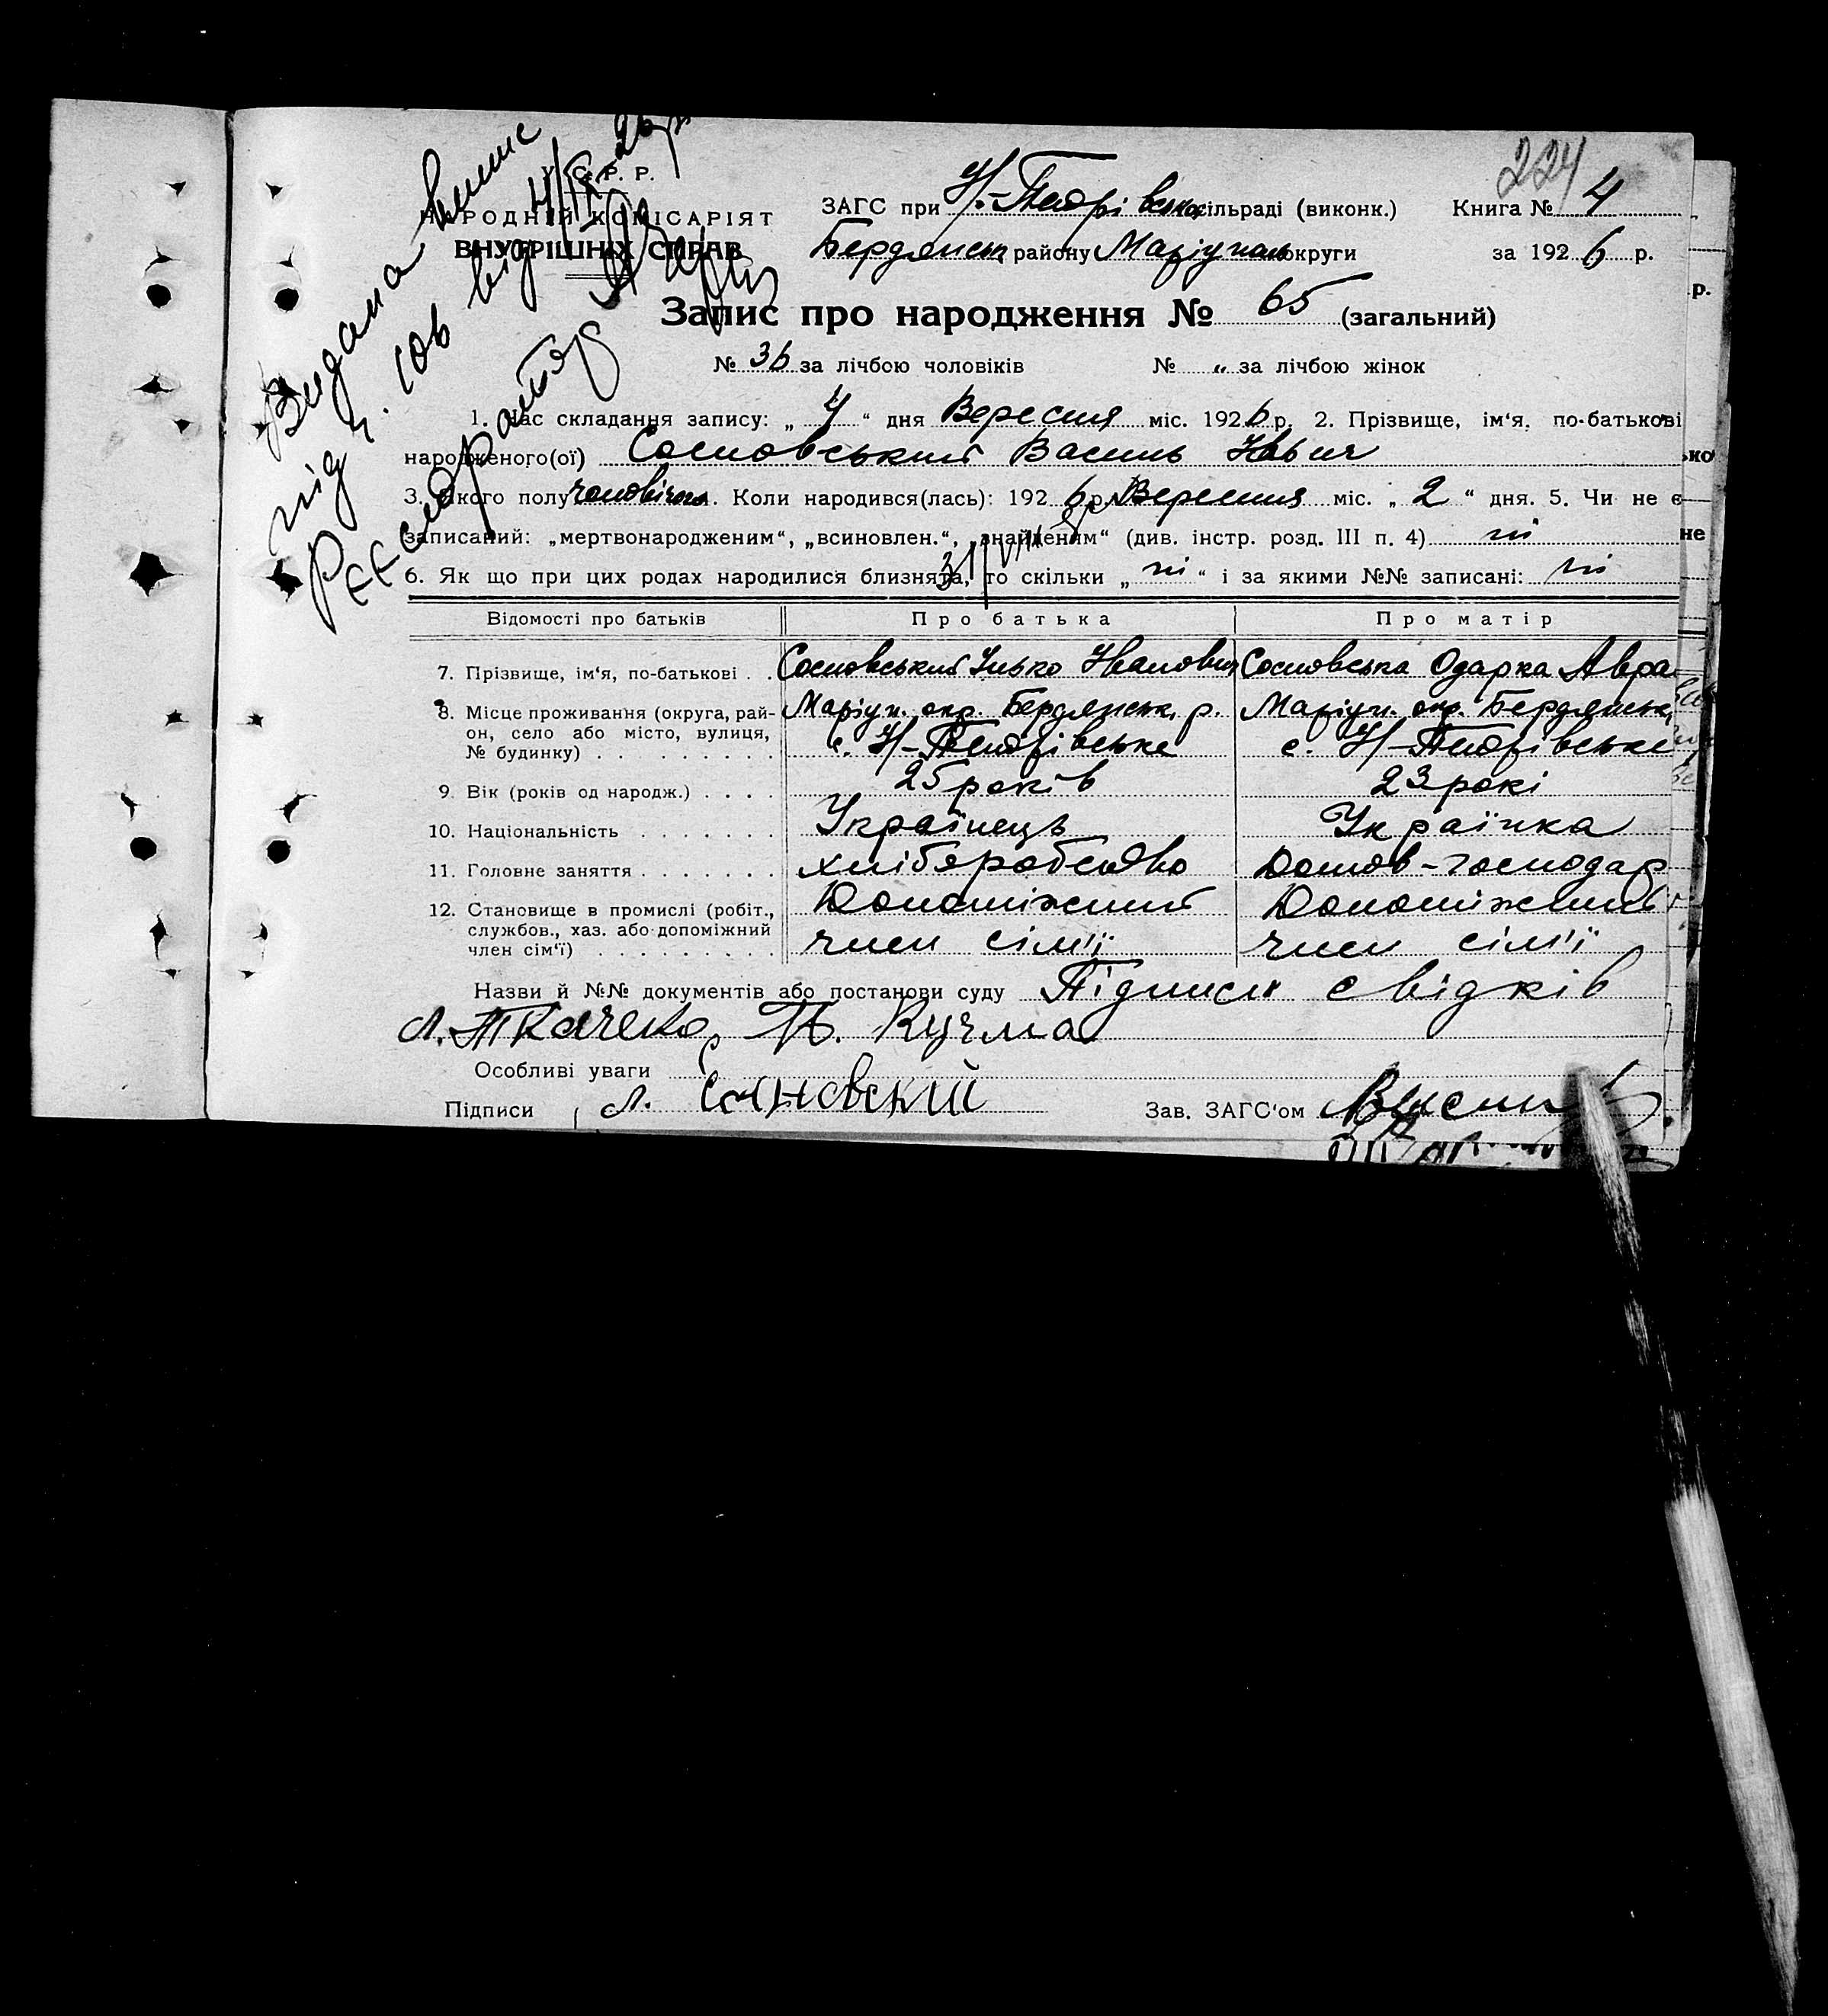 224
Видана випис
під ч. 106 від 4/IX 26 р.
Реєстратор
У. С. Р. Р.
НАРОДНІЙ КОМІСАРІЯТ
ВНУТРІШНІХ СПРАВ
ЗАГС при Н/-Петрівській сільраді (виконк.) Книга № 4
Бердянськ району Маріупаль округи за 1926 р.
Запис про народження № 65 (загальний)
№ 36 за лічбою чоловіків № „ за лічбою жінок
1. Час складання запису: „4“ дня Вересня міс. 1926 р. 2. Прізвище, ім‘я, по-батькові
народженого(ої) Сосновський Василь
3. Якого полу чоловічого. Коли народився(лась): 1926 р. Вересня міс. „2“ дня. 5. Чи не є
записаний: „мертвонародженим“, „всиновлен.“, „знайденим“ (див. інстр. розд. III п. 4) ні
31/VIII
6. Як що при цих родах народилися близнята, то скільки „ні“ і за якими №№ записані: ні
Відомості про батьків Про батька Про матір
7. Прізвище, ім‘я, по-батькові . . Сосновський Ілько Іванович Сосновська Одарка Авра
8. Місце проживання (округа, рай- Маріуп. окр. Бердянськ. р. Маріуп. окр. Бердянськ.
он, село або місто, вулиця, с. Н/-Петрівське с. Н/-Петрівське
№ будинку) . . . . . . . . .
9. Вік (років од народж.) . . . . 25 років 23 рокі
10. Національність . . . . . . . Українець Українка
11. Головне заняття . . . . . . . хліборобство Домов-господар
12. Становище в промислі (робіт., Допоміжний Допоміжний
службов., хаз. або допоміжний
член сім‘ї) . . . . . . . . . член сім'ї член сім'ї
Назви й №№ документів або постанови суду Підписи свідків
Л. Ткаченко, П. Кучма
Особливі уваги
Підписи Л. Сосновский Зав. ЗАГС‘ом